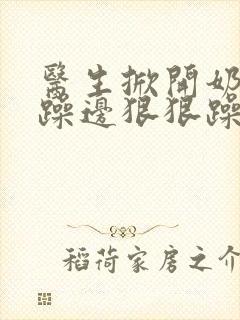 醫生掀開奶
躁邊狠狠躁
稻荷家房之介